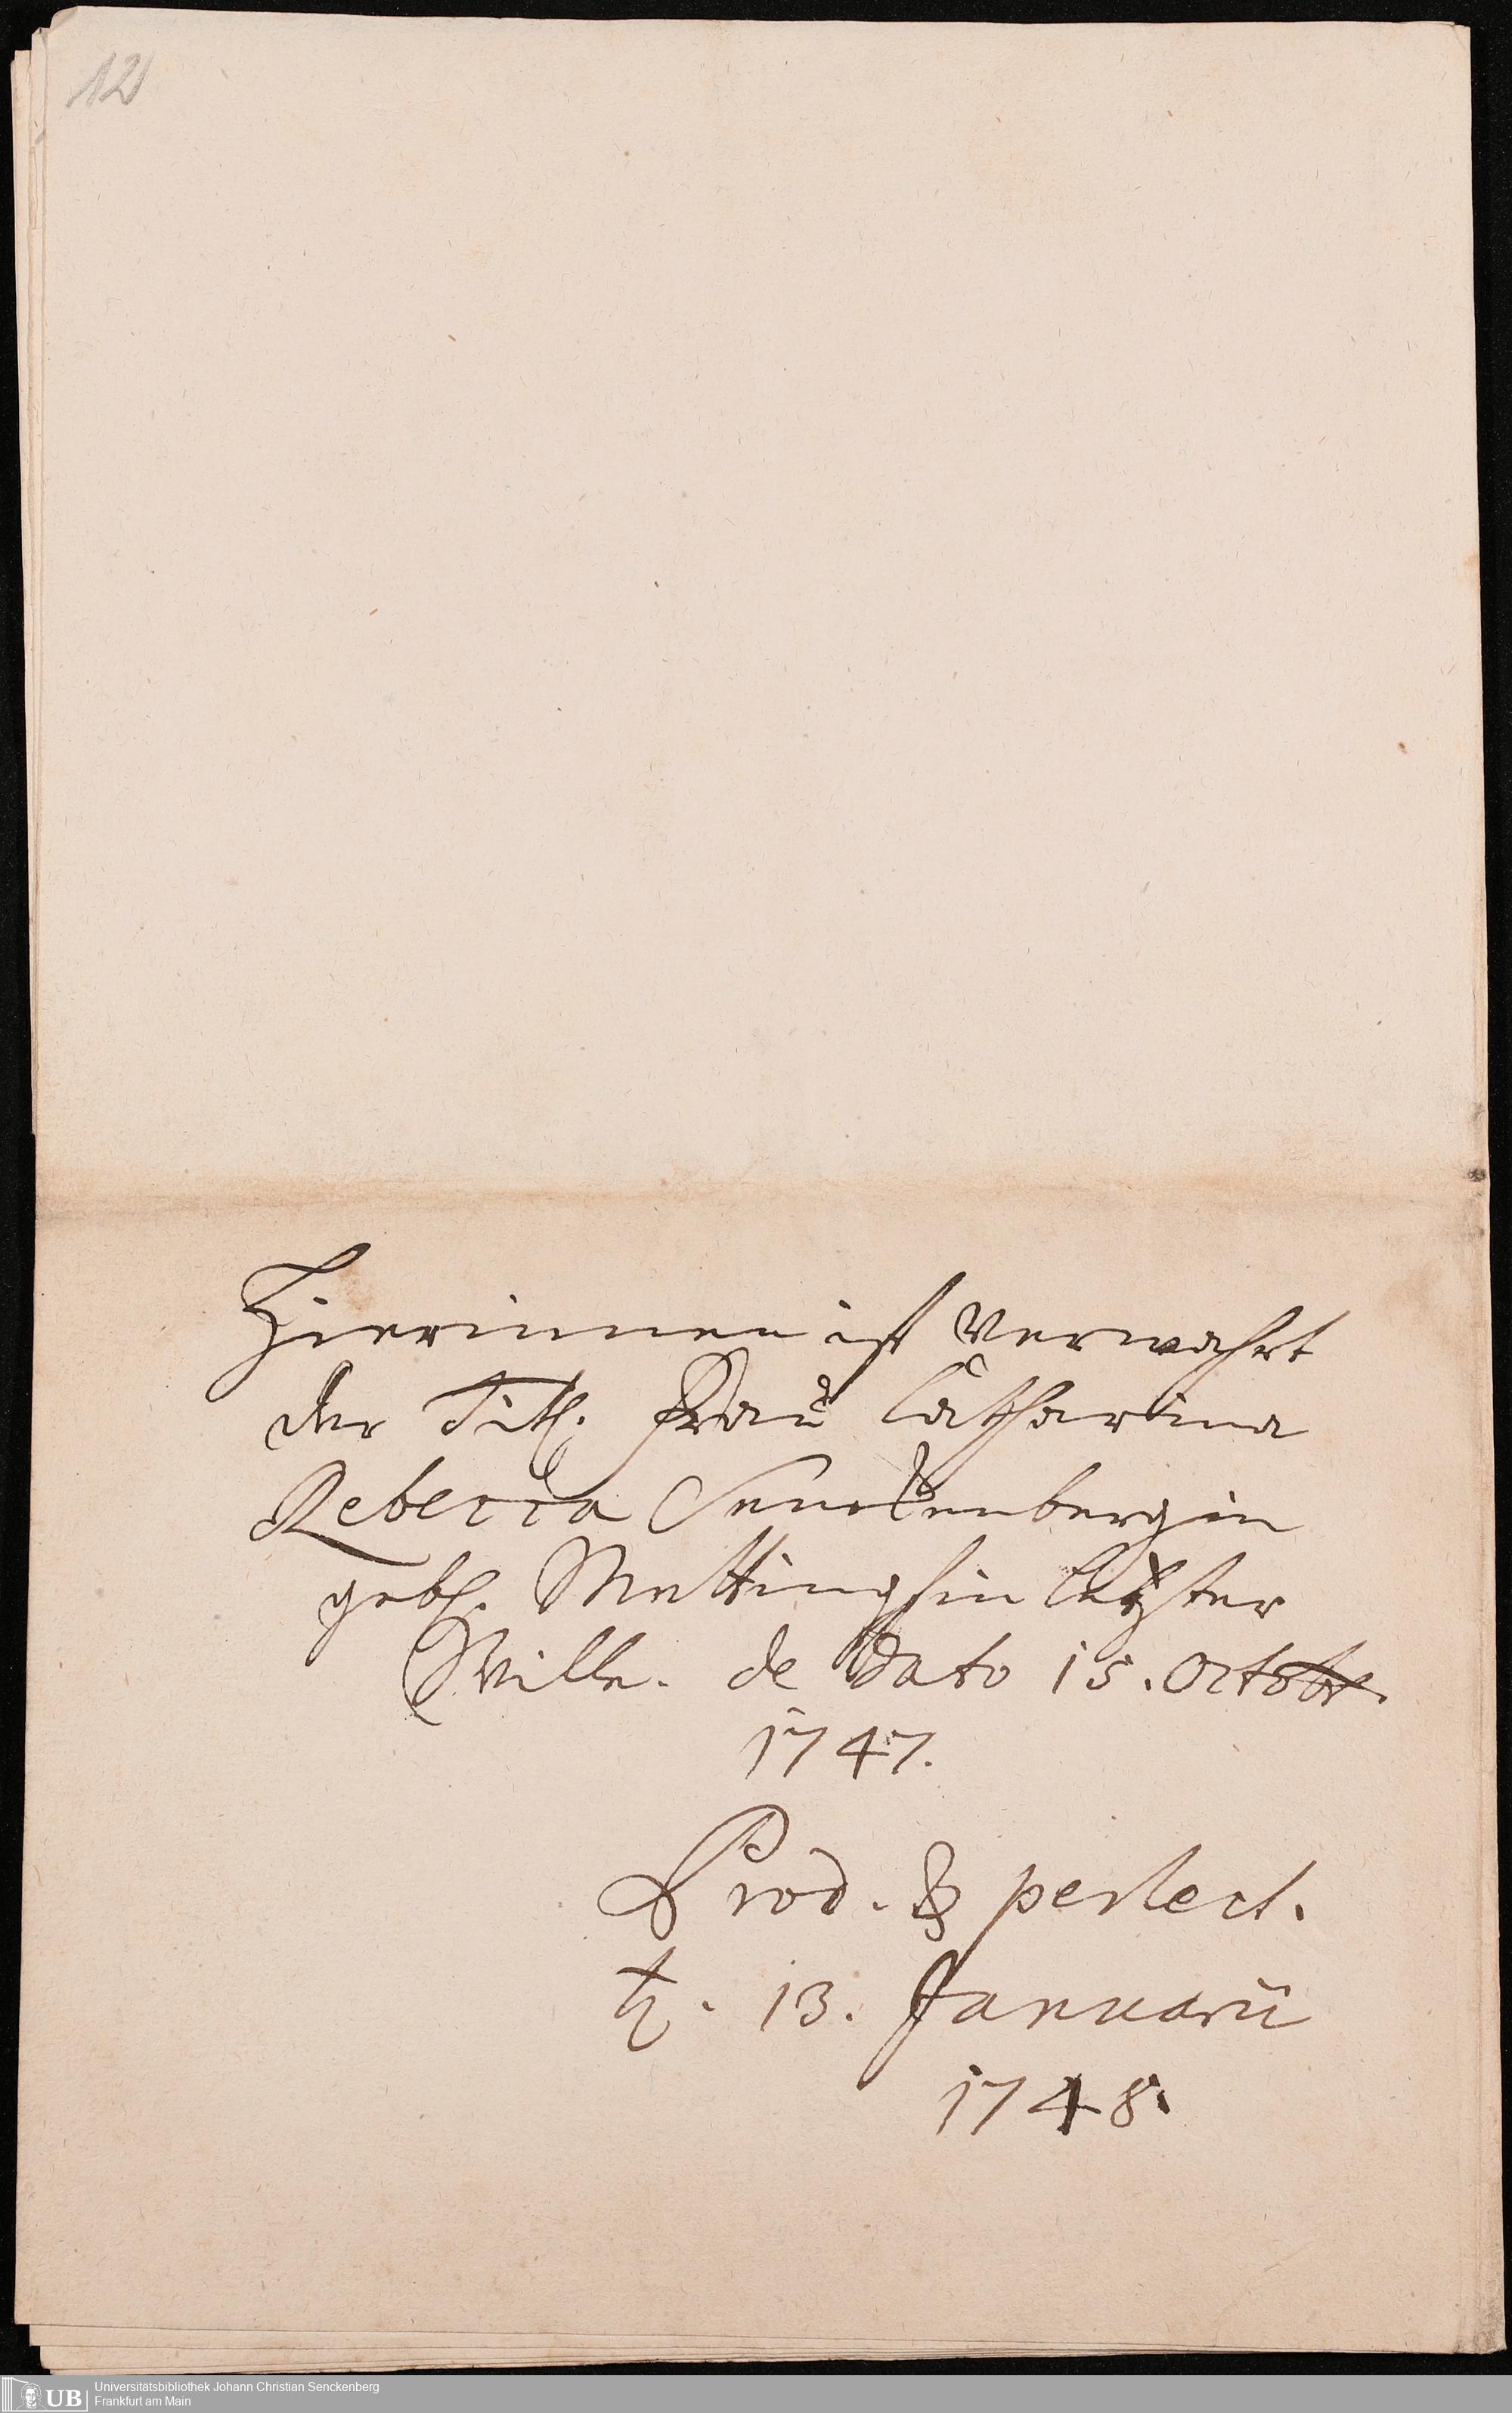 12
Hierinnen ist verwahrt
der Tit. Frau Catharina
Rebecca Senckenbergin
geb. Mettinghin letzter
Wille. de Dato 15. Octobr.
1747.
Prod. & perlect.
♄. 13. Januarii
1748.
UB Universitätsbibliothek Johann Christian Senckenberg
Frankfurt am Main